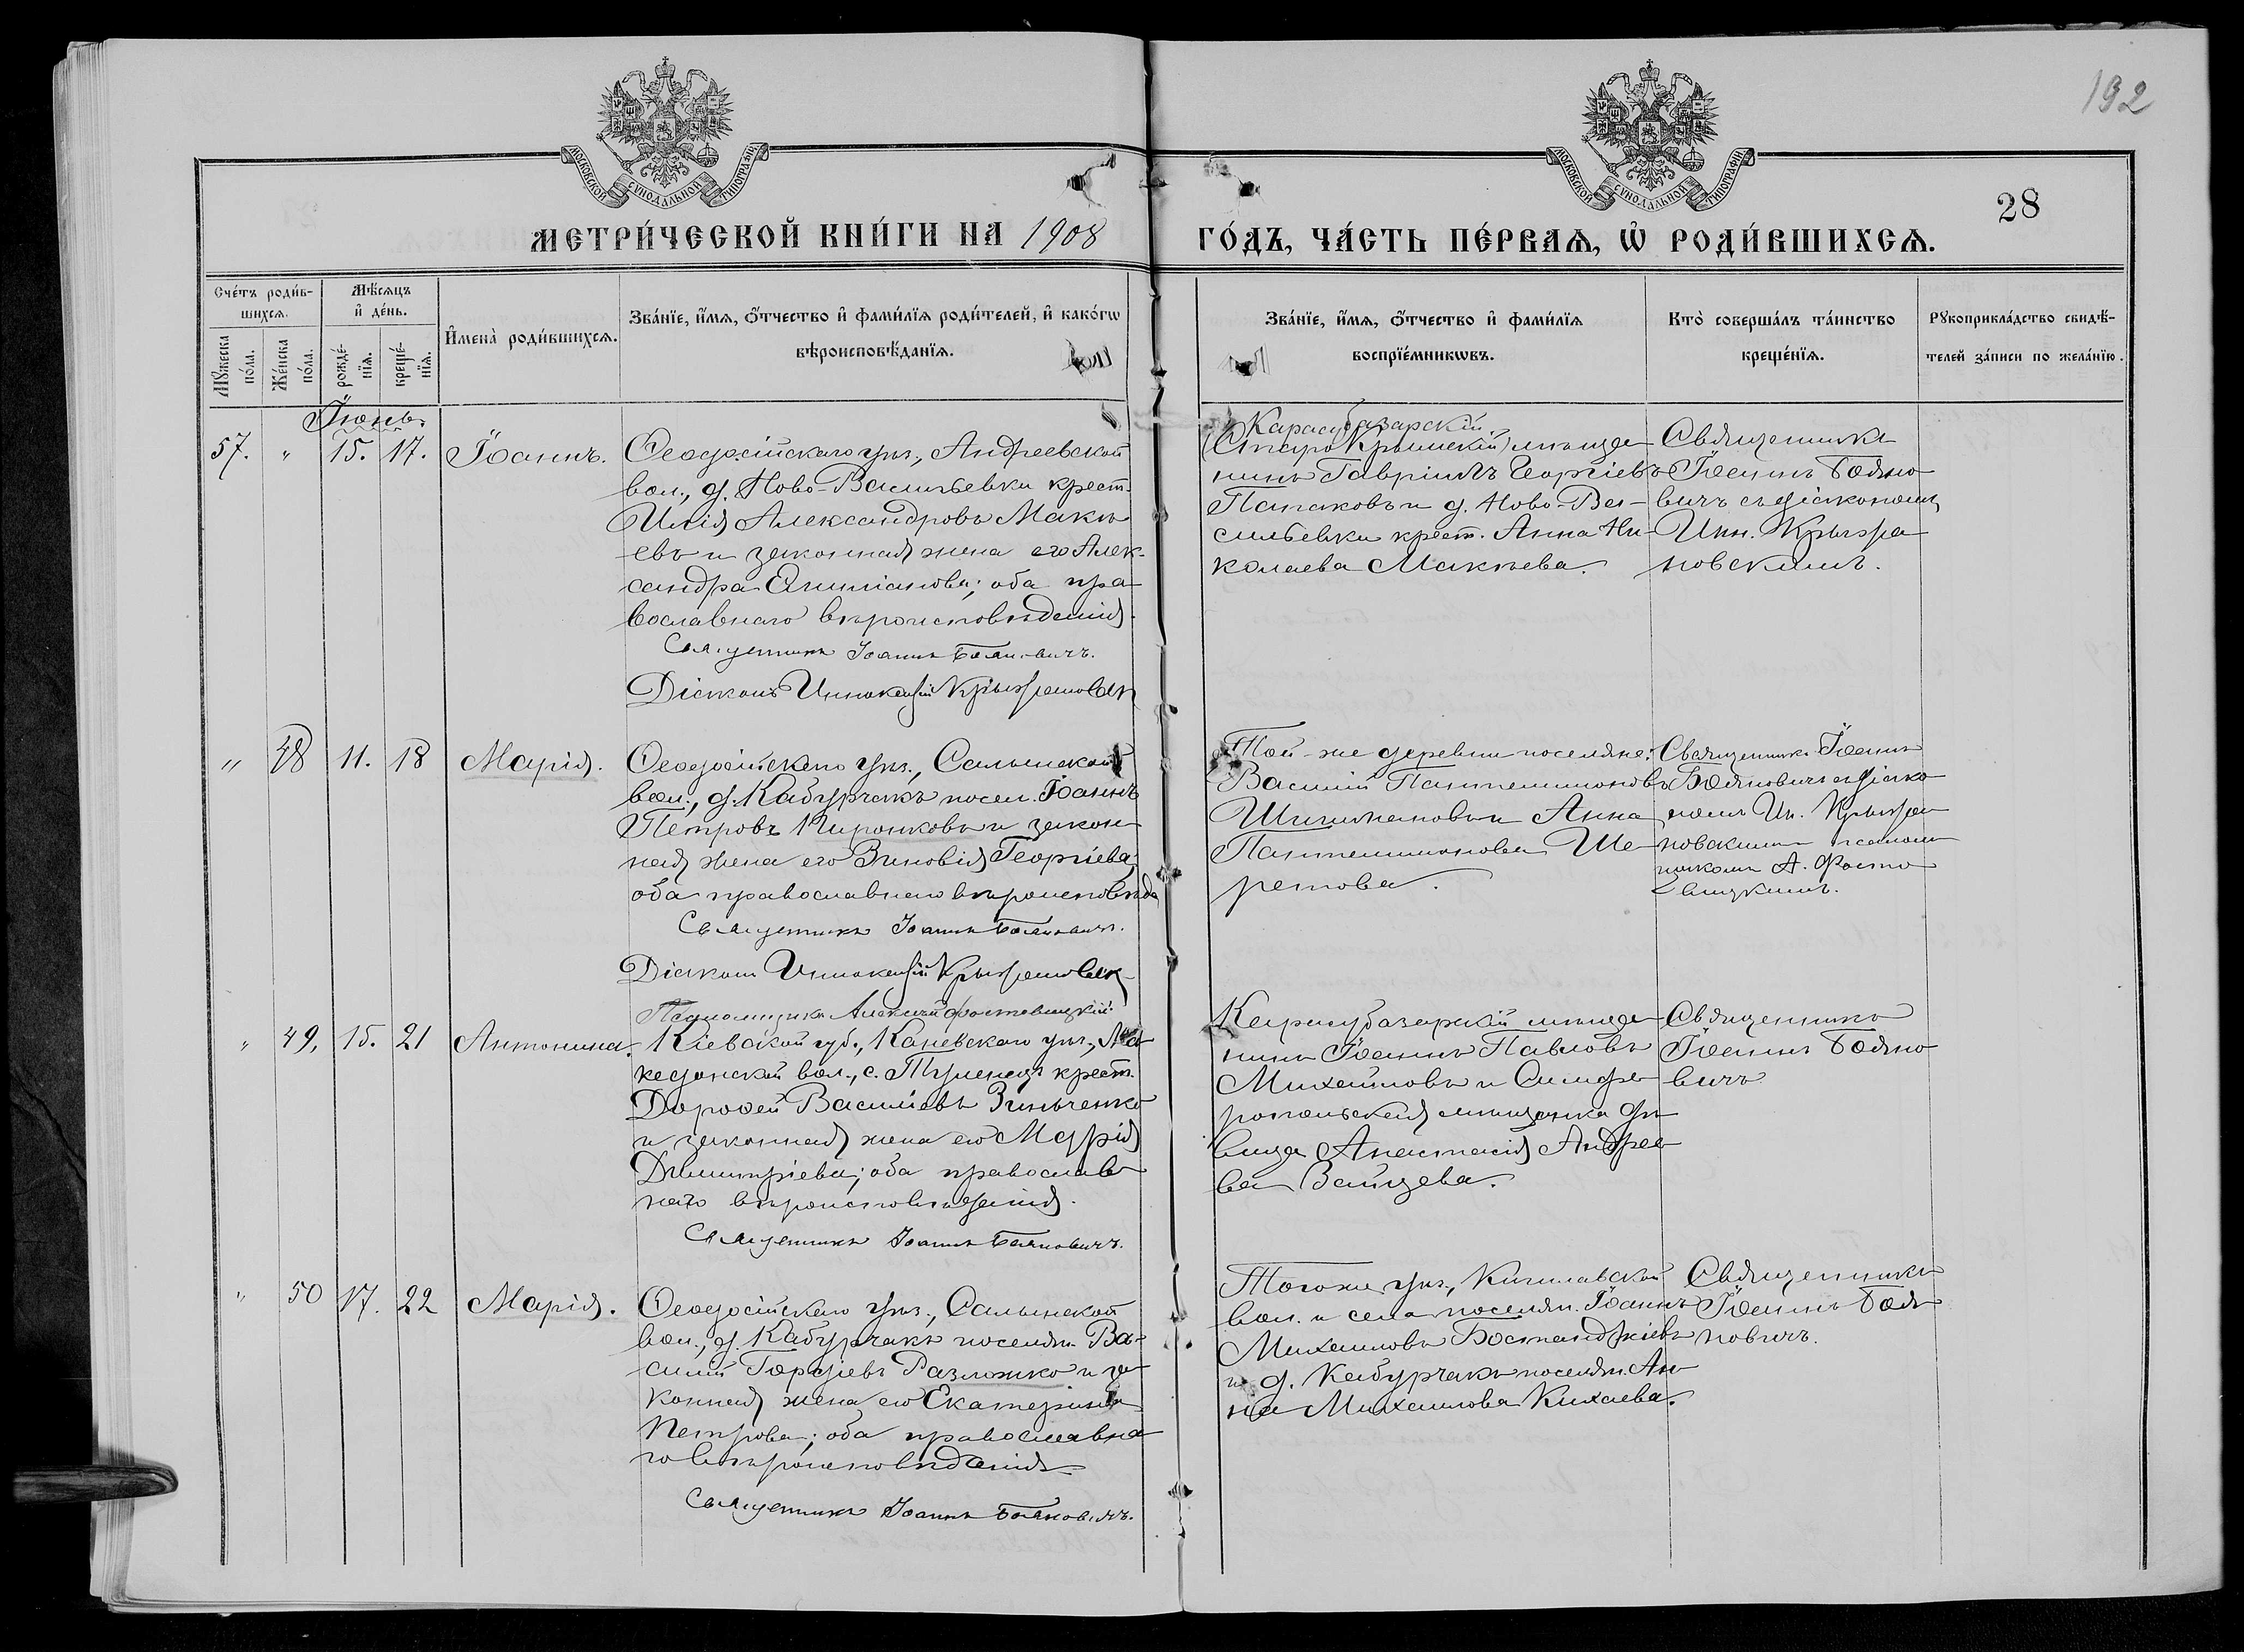 192
МОСКОВСКОЙ СѴНОДАЛЬНОЙ ТИПОГРАФІИ
МОСКОВСКОЙ СѴНОДАЛЬНОЙ ТИПОГРАФІИ
28
МЕТРИ́ЧЕСКОЙ КНИ́ГИ НА 1908
ГО́ДЪ, ЧА́СТЬ ПЕ́РВАѦ, Ѽ РОДИ́ВШИХСѦ.
Сче́тъ роди́в-
шихсѧ.
Мѣ́сѧцъ
и҆ де́нь.
И҆мена̀ роди́вшихсѧ.
Зва́нїе, и҆́мѧ, ѻ҆́тчество и҆ фами́лїѧ роди́телей, и҆ како́гѡ
вѣроисповѣ́данїѧ.
Зва́нїе, и҆́мѧ, ѻ҆́тчество и҆ фами́лїѧ
воспрїе́мникѡвъ.
Кто̀ соверша́лъ та́инство
креще́нїѧ.
Рꙋкоприкла́дство свидѣ́-
телей за́писи по жела́нїю.
Мꙋ́жеска
по́ла.
Же́нска
по́ла.
рожде́-
нїѧ.
креще́-
нїѧ.
Іюнь.
57. " 15. 17. Іоаннъ.
Ѳеодосійскаго уѣз., Андреевской
вол., д. Ново-Васильевки крест.
Илія Александровъ Макѣ
евъ и законная жена его Алек-
сандра; оба пра
вославнаго вѣроисповѣданія.
Священникъ Іоаннъ Бояновичъ.
Діаконъ Иннокентій
Карасубазарскій
(Старо Крымскій) мѣща
нинъ Гавріилъ Георгіевъ
Папаковъ и д. Ново-Ва-
сильевки крест. Анна Ни-
колаева Макѣева.
Священникъ
Іоаннъ Бояно
вичъ съ діакономъ
Инн. Крыжа
новскимъ.
" 48 11. 18 Марія.
Ѳеодосійскаго уѣз., Салынской
вол., д. Кабурчакъ посел. Іоаннъ
Петровъ Чиронковъ и закон
ная жена его Зиновія Георгіева;
оба православнаго вѣроисповѣда
Священникъ Іоаннъ Бояновичъ.
Діаконъ Иннокентій
Псаломщикъ Алексій
Той-же деревни поселяне:
Василій Пантелимоновъ
Шишмановъ и Анна
Пантелимонова Ше
ретова.
Священникъ Іоаннъ
Бояновичъ съ діако
номъ Ин. Крыжа
новскимъ и псалом
щикомъ А.
" 49. 15. 21 Антонина.
Кіевской губ., Каневскаго уѣз.,
кедонской вол., с. крест.
Дороѳей Васильевъ Зинченко
и законная жена его Марія
Димитріева; оба православ
наго вѣроисповѣданія.
Священникъ Іоаннъ Бояновичъ.
Карасубазарскій мѣща
нинъ Іоаннъ Павловъ
Михайловъ и Симфе
ропольская мѣщанка дѣ
вица Анастасія Андрее
ва Зайцева.
Священникъ
Іоаннъ Бояно
вичъ
" 50 17. 22 Марія.
Ѳеодосійскаго уѣз., Салынской
вол., д. Кабурчакъ поселян. Ва-
силій Георгіевъ Разложко и за
конная жена его Екатерина
Петрова; оба православна
го вѣроисповѣданія
Священникъ Іоаннъ Бояновичъ.
Того же уѣз., Кишлавской
вол. и села поселян. Іоаннъ
Михаиловъ Бостанджіевъ
и д. Кабурчакъ поселян. Ан
на Михаилова Кихаева.
Священникъ
Іоаннъ Боя
новичъ.